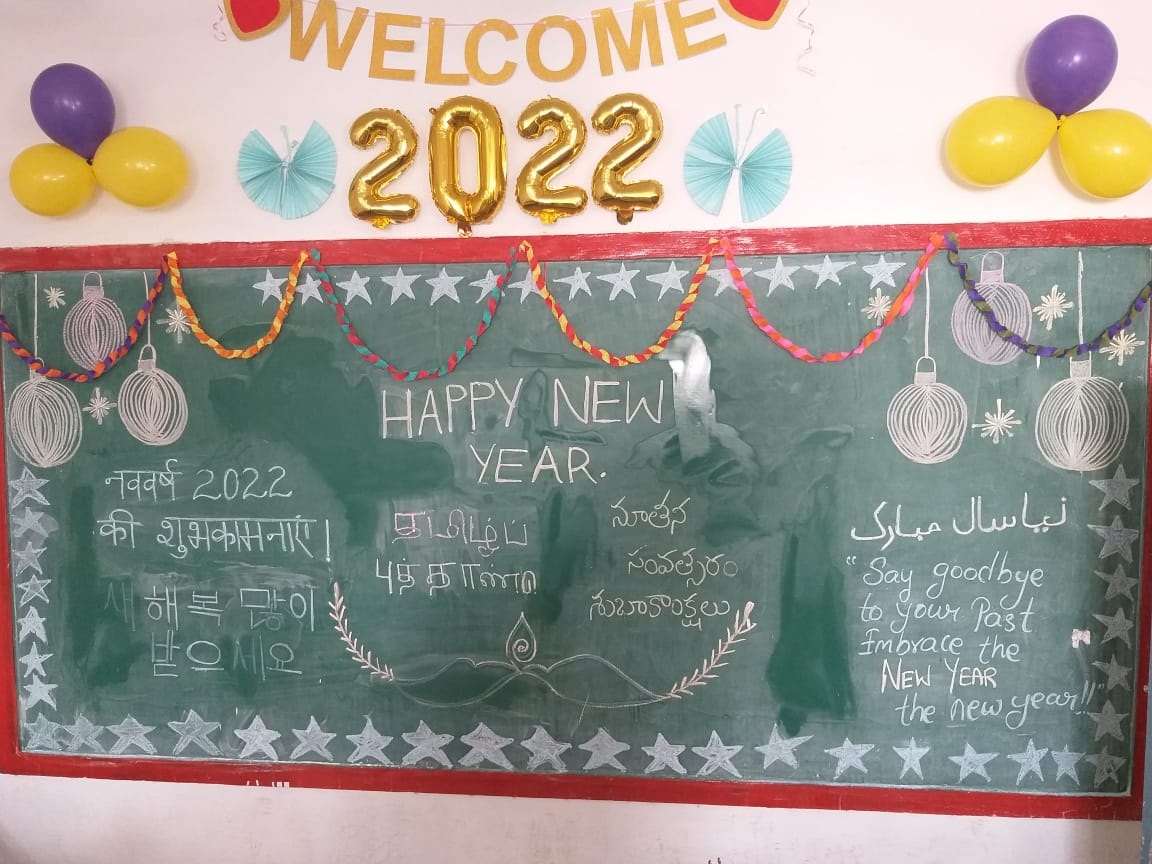 WELCOME
2022
HAPPY NEW
YEAR.
नववर्ष 2022
की शुभकामनाएं!
새해 복 많이
받으세요
தமிழ்ப்
நூதன
సంవత్సరం
శుభాకాంక్షలు
نیا سال مبارک
"Say goodbye
to your Past
Imbrace the
NEW YEAR
the new year!!"